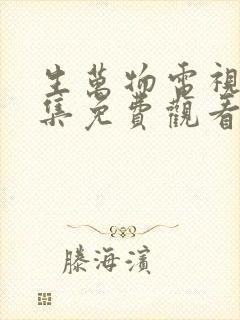 生萬物電視
集免費觀看
滕海濱